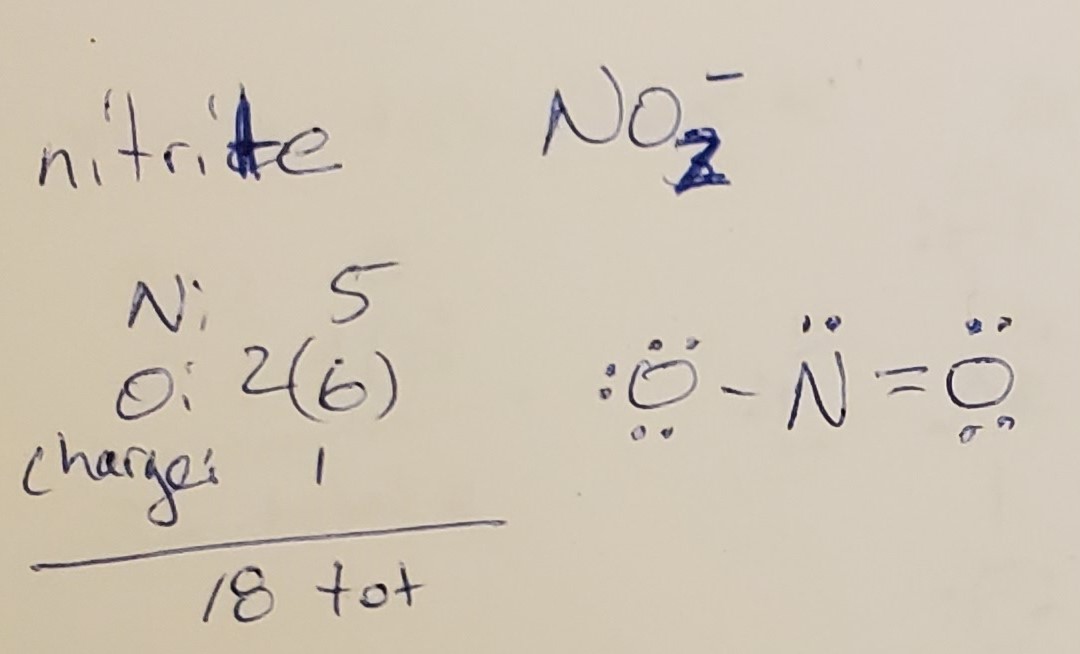 nitrite NO₂⁻
N: 5
O: 2(6)
charge: 1
18 tot
:Ö - N̈ = Ö